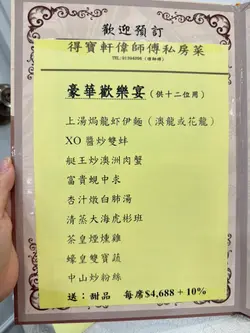 歡迎預訂
得寶軒偉師傅私房菜
豪華歡樂宴 (供十二位用)
上湯焗龍虾伊麵 (澳龍或花龍)
XO 醬炒雙蚌
艇王炒澳洲肉蟹
富貴蜆中求
杏汁燉白肺湯
清蒸大海虎彬班
茶皇煙燻雞
蠔皇雙寶蔬
中山炒粉絲
送：甜品 每席$4,688 + 10%